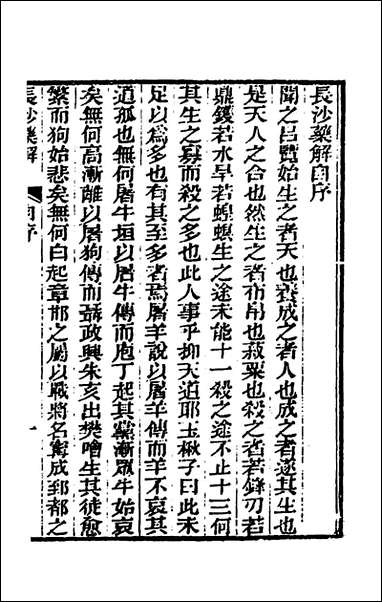 長沙藥解自序
聞之呂覽始生之者天也養成之者人也成之者遂其生也
是天人之合也然生之者布帛也菽粟也殺之者若鋒刃若
鼎鑊若水旱若蝗螟生之途未能十一殺之途不止十三何
其生之寡而殺之多也此人事乎抑天道耶玉楸子曰此未
足以爲多也有其至多者焉屠羊說以屠羊傳而羊不哀其
道孤也無何屠牛垣以屠牛傳而庖丁起其黨漸眾牛始哀
矣無何高漸離以屠狗傳而聶政興朱亥出樊噲生其徒愈
繁而狗始悲矣無何白起章邯之屬以戰將名甯成郅都之
長沙藥解
自序
一